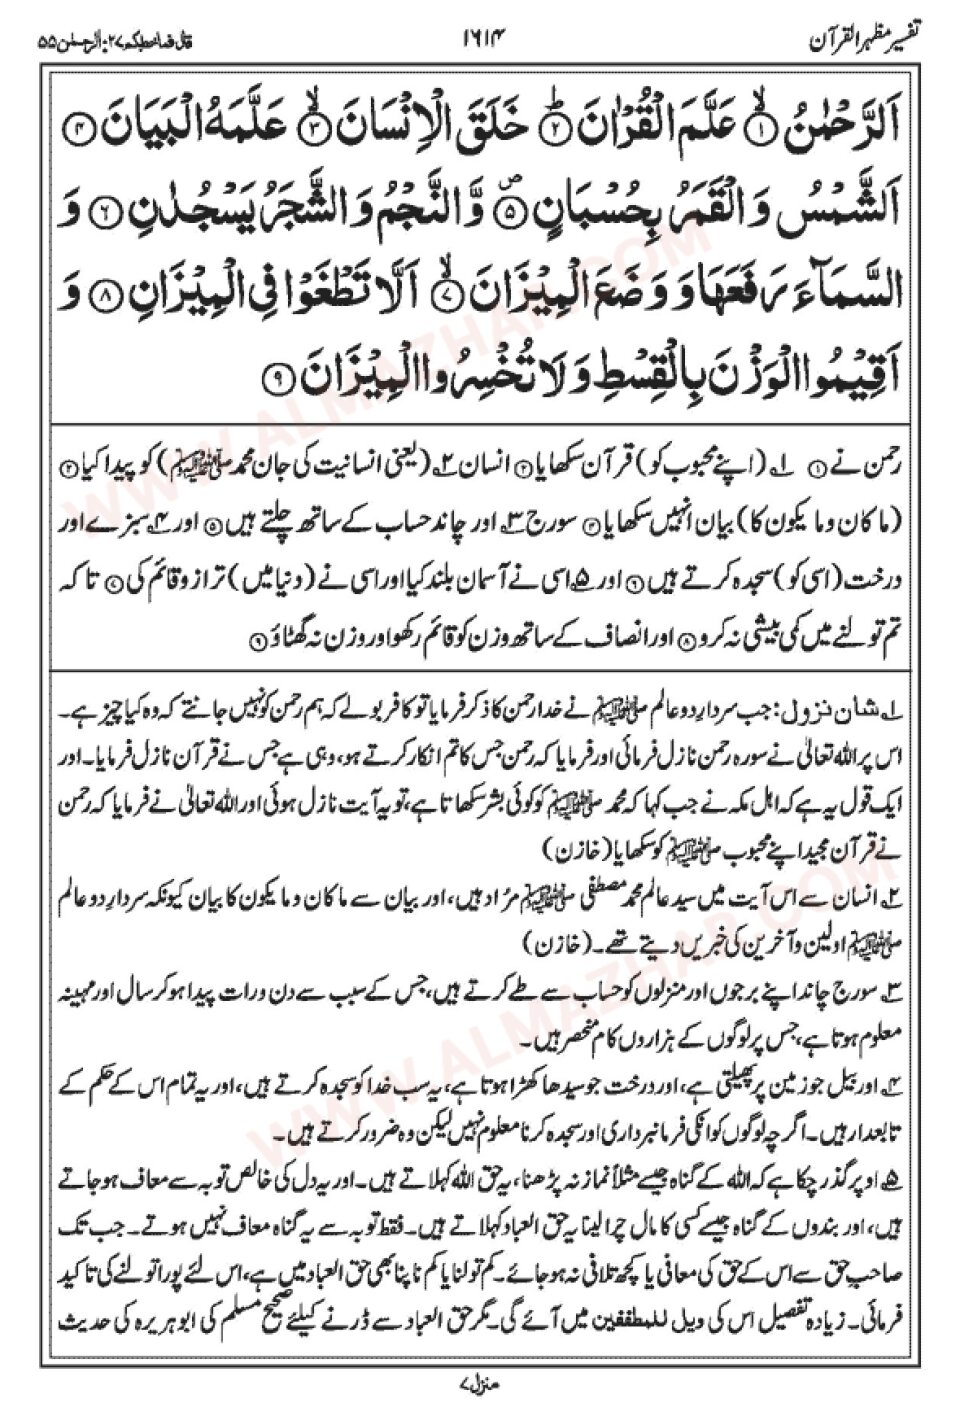 تفسیر مظہر القرآن ۱۶۱۴ قال فما خطبکم ۲۷: الرحمٰن ۵۵
اَلرَّحْمٰنُ ۙ﴿۱﴾ عَلَّمَ الْقُرْاٰنَ ؕ﴿۲﴾ خَلَقَ الْاِنْسَانَ ۙ﴿۳﴾ عَلَّمَهُ الْبَیَانَ ﴿۴﴾
اَلشَّمْسُ وَ الْقَمَرُ بِحُسْبَانٍ ۪﴿۵﴾ وَّ النَّجْمُ وَ الشَّجَرُ یَسْجُدٰنِ ﴿۶﴾ وَ
السَّمَآءَ رَفَعَهَا وَ وَضَعَ الْمِیْزَانَ ۙ﴿۷﴾ اَلَّا تَطْغَوْا فِی الْمِیْزَانِ ﴿۸﴾ وَ
اَقِیْمُوا الْوَزْنَ بِالْقِسْطِ وَ لَا تُخْسِرُوا الْمِیْزَانَ ﴿۹﴾
رحمن نے ﴿۱﴾ ۱؎ (اپنے محبوب کو) قرآن سکھایا ﴿۲﴾ انسان ۲؎ (یعنی انسانیت کی جان محمد ﷺ) کو پیدا کیا ﴿۳﴾
(ما کان و ما یکون کا) بیان انہیں سکھایا ﴿۴﴾ سورج ۳؎ اور چاند حساب کے ساتھ چلتے ہیں ﴿۵﴾ اور ۴؎ سبزے اور
درخت (اسی کو) سجدہ کرتے ہیں ﴿۶﴾ اور ۵؎ اسی نے آسمان بلند کیا اور اسی نے (دنیا میں) ترازو قائم کی ﴿۷﴾ تا کہ
تم تولنے میں کمی بیشی نہ کرو ﴿۸﴾ اور انصاف کے ساتھ وزن کو قائم رکھو اور وزن نہ گھٹاؤ ﴿۹﴾
۱؎ شان نزول: جب سردار دو عالم ﷺ نے خدا رحمن کا ذکر فرمایا تو کافر بولے کہ ہم رحمن کو نہیں جانتے کہ وہ کیا چیز ہے۔
اس پر اللہ تعالیٰ نے سورہ رحمن نازل فرمائی اور فرمایا کہ رحمن جس کا تم انکار کرتے ہو، وہی ہے جس نے قرآن نازل فرمایا۔ اور
ایک قول یہ ہے کہ اہل مکہ نے جب کہا کہ محمد ﷺ کو کوئی بشر سکھاتا ہے، تو یہ آیت نازل ہوئی اور اللہ تعالیٰ نے فرمایا کہ رحمن
نے قرآن مجید اپنے محبوب ﷺ کو سکھایا (خازن)
۲؎ انسان سے اس آیت میں سید عالم محمد مصطفی ﷺ مراد ہیں، اور بیان سے ما کان و ما یکون کا بیان کیونکہ سردار دو عالم
ﷺ اولین و آخرین کی خبریں دیتے تھے۔ (خازن)
۳؎ سورج چاند اپنے برجوں اور منزلوں کو حساب سے طے کرتے ہیں، جس کے سبب سے دن و رات پیدا ہو کر سال اور مہینہ
معلوم ہوتا ہے، جس پر لوگوں کے ہزاروں کام منحصر ہیں۔
۴؎ اور بیل جو زمین پر پھیلتی ہے، اور درخت جو سیدھا کھڑا ہوتا ہے، یہ سب خدا کو سجدہ کرتے ہیں، اور یہ تمام اس کے حکم کے
تابعدار ہیں۔ اگرچہ لوگوں کو انکی فرمانبرداری اور سجدہ کرنا معلوم نہیں لیکن وہ ضرور کرتے ہیں۔
۵؎ اوپر گذر چکا ہے کہ اللہ کے گناہ جیسے مثلاً نماز نہ پڑھنا، یہ حق اللہ کہلاتے ہیں۔ اور یہ دل کی خالص توبہ سے معاف ہو جاتے
ہیں، اور بندوں کے گناہ جیسے کسی کا مال چرا لینا یہ حق العباد کہلاتے ہیں۔ فقط توبہ سے یہ گناہ معاف نہیں ہوتے۔ جب تک
صاحب حق سے اس کے حق کی معافی یا کچھ تلافی نہ ہو جائے۔ کم تولنا یا کم ناپنا بھی حق العباد میں ہے، اس لئے پورا تولنے کی تاکید
فرمائی۔ زیادہ تفصیل اس کی ویل للمطففین میں آئے گی۔ مگر حق العباد سے ڈرنے کیلئے صحیح مسلم کی ابو ہریرہ کی حدیث
منزل ۷
WWW.ALMAZHAR.COM
WWW.ALMAZHAR.COM